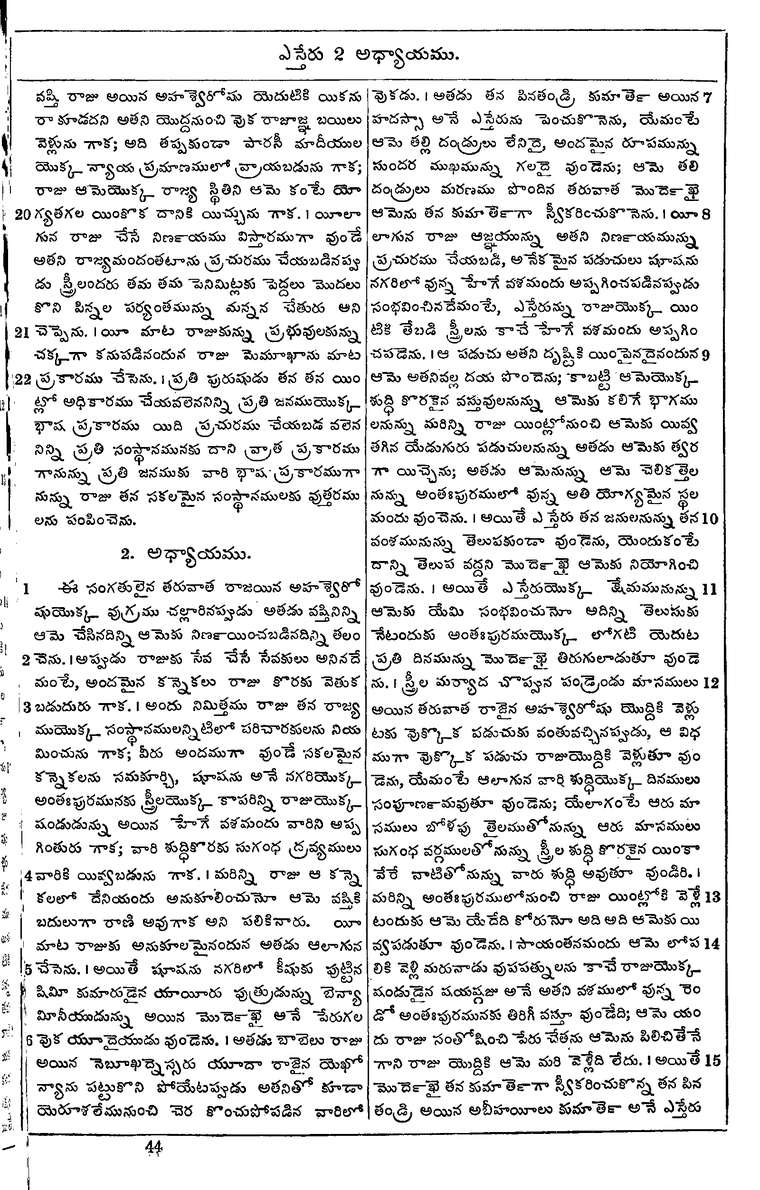 ఎస్తేరు 2 అధ్యాయము.
వష్తి రాజు అయిన అహశ్వెరోషు యెదుటికి యికను
రా కూడదని అతని యొద్దనుంచి వొక రాజాజ్ఞ బయిలు
వెళ్లును గాక; అది తప్పకుండా పారసీ మాదీయుల
యొక్క న్యాయ ప్రమాణములో వ్రాయబడును గాక;
రాజు ఆమెయొక్క రాజ్య స్థితిని ఆమె కంటే యో
20 గ్యతగల యింకొక దానికి యిచ్చును గాక. ౹ యీలా
గున రాజు చేసే నిణ౯యము విస్తారముగా వుండే
అతని రాజ్యమందంతటాను ప్రచురము చేయబడినప్వ
డు స్త్రీలందరు తమ తమ పెనిమిట్లకు పెద్దలు మొదలు
కొని పిన్నల పర్యంతమున్ను మన్నన చేతురు అని
21 చెప్పెను. ౹ యీ మాట రాజుకున్ను ప్రభువులకున్ను
చక్కగా కనుపడినందున రాజు మెమూఖాను మాట
22 ప్రకారము చేసెను. ౹ ప్రతి పురుషుడు తన తన యిం
ట్లో అధికారము చేయవలెననిన్ని ప్రతి జనముయొక్క
భాష ప్రకారము యిది ప్రచురము చేయబడ వలెన
నిన్ని ప్రతి సంస్థానమునకు దాని వ్రాత ప్రకారము
గానున్ను ప్రతి జనముకు వారి భాష ప్రకారముగా
నున్ను రాజు తన సకలమైన సంస్థానములకు వుత్తరము
లను పంపించెను.
2. అధ్యాయము.
1 ఈ సంగతులైన తరువాత రాజయిన అహశ్వెరో
షుయొక్క వుగ్రము చల్లారినప్పడు అతడు వష్తినిన్ని
ఆమె చేసినదిన్ని ఆమెకు నిణ౯యించబడినదిన్ని తలం
2 చెను. ౹ అప్పడు రాజుకు సేవ చేసే సేవకులు అనినదే
మంటే, అందమైన కన్నెకలు రాజు కొరకు వెతుక
3 బడుదురు గాక. ౹ అందు నిమిత్తము రాజు తన రాజ్య
ముయొక్క సంస్థానములన్నిటిలో పరిచారకులను నియ
మించును గాక; వీరు అందముగా వుండే సకలమైన
కన్నెకలను సమకూర్చి, షూషను అనే నగరియొక్క
అంతఃపురమునకు స్త్రీలయొక్క కాపరిన్ని రాజుయొక్క
షండుడున్ను అయిన హేగే వశమందు వారిని అప్ప
గింతురు గాక; వారి శుద్ధికొరకు సుగంధ ద్రవ్యములు
4 వారికి యివ్వబడును గాక. ౹ మరిన్ని రాజు ఆ కన్నె
కలలో దేనియందు అనుకూలించునొ ఆమె వష్తికి
బదులుగా రాణి అవుగాక అని పలికినారు. యీ
మాట రాజుకు అనుకూలమైనందున అతడు ఆలాగున
5 చేసెను. ౹ అయితే షూషను నగరిలో కీషుకు పుట్టిన
షిమీ కుమారుడైన యాయీరు పుత్రుడున్ను బెన్యా
మినీయుడున్ను అయిన మొదె౯ఖై ఆనే పేరుగల
6 వొక యూదైయుడు వుండెను. ౹ అతడు బాబెలు రాజు
అయిన నెబూఖద్నెస్సరు యూదా రాజైన యెఖో
న్యాను పట్టుకొని పోయేటప్వడు అతనితో కూడా
యెరూశలేమునుంచి చెర కొంచుపోపడిన వారిలో
వొకడు. ౹ అతడు తన పినతండ్రి కుమాతె౯ అయిన 7
హదస్సా అనే ఎస్తేరును పెంచుకొనెను, యేమంటే
ఆమె తల్లి దండ్రులు లేనిదై, అందమైన రూపమున్ను
సుందర ముఖమున్ను గలదై వుండెను; ఆమె తలి
దండ్రులు మరణము పొందిన తరువాత మొదె౯ఖై
ఆమెను తన కుమాతె౯గా స్వీకరించుకొనెను. ౹ యీ 8
లాగున రాజు ఆజ్ఞయున్ను అతని నిణ౯యమున్ను
ప్రచురము చేయబడి, అనేకమైన పడుచులు షూషను
నగరిలో వున్న హేగే వశమందు అప్పగించపడినప్పడు
సంభవించినదేమంటే, ఎస్తేరున్ను రాజుయొక్క యిం
టికి తేబడి స్త్రీలను కాచే హేగే వశమందు అప్పగిం
చపడెను. ౹ ఆ పడుచు అతని దృష్టికి యింపైనదైనందున 9
ఆమె అతనివల్ల దయ పొందెను; కాబట్టి ఆమెయొక్క
శుద్ధి కొరకైన వస్తువులనున్ను ఆమెకు కలిగే భాగము
లనున్ను మరిన్ని రాజు యింట్లోనుంచి ఆమెకు యివ్వ
తగిన యేడుగురు పడుచులనున్ను అతడు ఆమెకు త్వర
గా యిచ్చెను; అతడు ఆమెనున్ను ఆమె చెలికత్తెల
నున్ను అంతఃపురములో వున్న అతి యోగ్యమైన స్థల
మందు వుంచెను. ౹ అయితే ఎస్తేరు తన జనులనున్ను తన 10
వంశమునున్ను తెలుపకుండా వుండెను, యెందుకంటే
దాన్ని తెలుప వద్దని మొదె౯ఖై ఆమెకు నియోగించి
వుండెను. ౹ అయితే ఎస్తేరుయొక్క క్షేమమునున్ను 11
ఆమెకు యేమి సంభవించునొ అదిన్ని తెలుసుకు
నేటందుకు అంతఃపురముయొక్క లోగటి యెదుట
ప్రతి దినమున్ను మొదె౯ఖై తిరుగులాడుతూ వుండె
ను. ౹ స్త్రీల మర్యాద చొప్పున పండ్రెండు మాసములు 12
అయిన తరువాత రాజైన అహశ్వెరోషు యొద్దికి వెళ్లు
టకు వొక్కొక పడుచుకు వంతువచ్చినప్పడు, ఆ విధ
ముగా వొక్కొక పడుచు రాజుయొద్దికి వెళ్లుతూ వుం
డెను, యేమంటే ఆలాగున వారి శుద్ధియొక్క దినములు
సంపూణ౯మవుతూ వుండెను; యేలాగంటే ఆరు మా
సములు బోళపు తైలముతోనున్ను ఆరు మాసములు
సుగంధ వర్గములతోనున్ను స్త్రీల శుద్ధి కొరకైన యింకా
వేరే వాటితోనున్ను వారు శుద్ధి అవుతూ వుండిరి. ౹
మరిన్ని అంతఃపురములోనుంచి రాజు యింట్లోకి వెళ్లే 13
టందుకు ఆమె యేదేది కోరునొ అది అది ఆమెకు యి
వ్వపడుతూ వుండెను. ౹ సాయంతనమందు ఆమె లోప 14
లికి వెళ్లి మరునాడు వుపపత్నులను కాచే రాజుయొక్క
షండుడైన షయష్గజు అనే అతని వశములో వున్న రెం
డో అంతఃపురమునకు తిరిగీ వస్తూ వుండేది; ఆమె యం
దు రాజు సంతోషించి పేరు చేతను ఆమెను పిలిచితేనే
గాని రాజు యొద్దికి ఆమె మరి వెళ్లేది లేదు. ౹ అయితే 15
మొదె౯ఖై తన కుమాతె౯గా స్వీకరించుకొన్న తన పిన
తండ్రి అయిన అబీహయీలు కుమాతె౯ అనే ఎస్తేరు
44